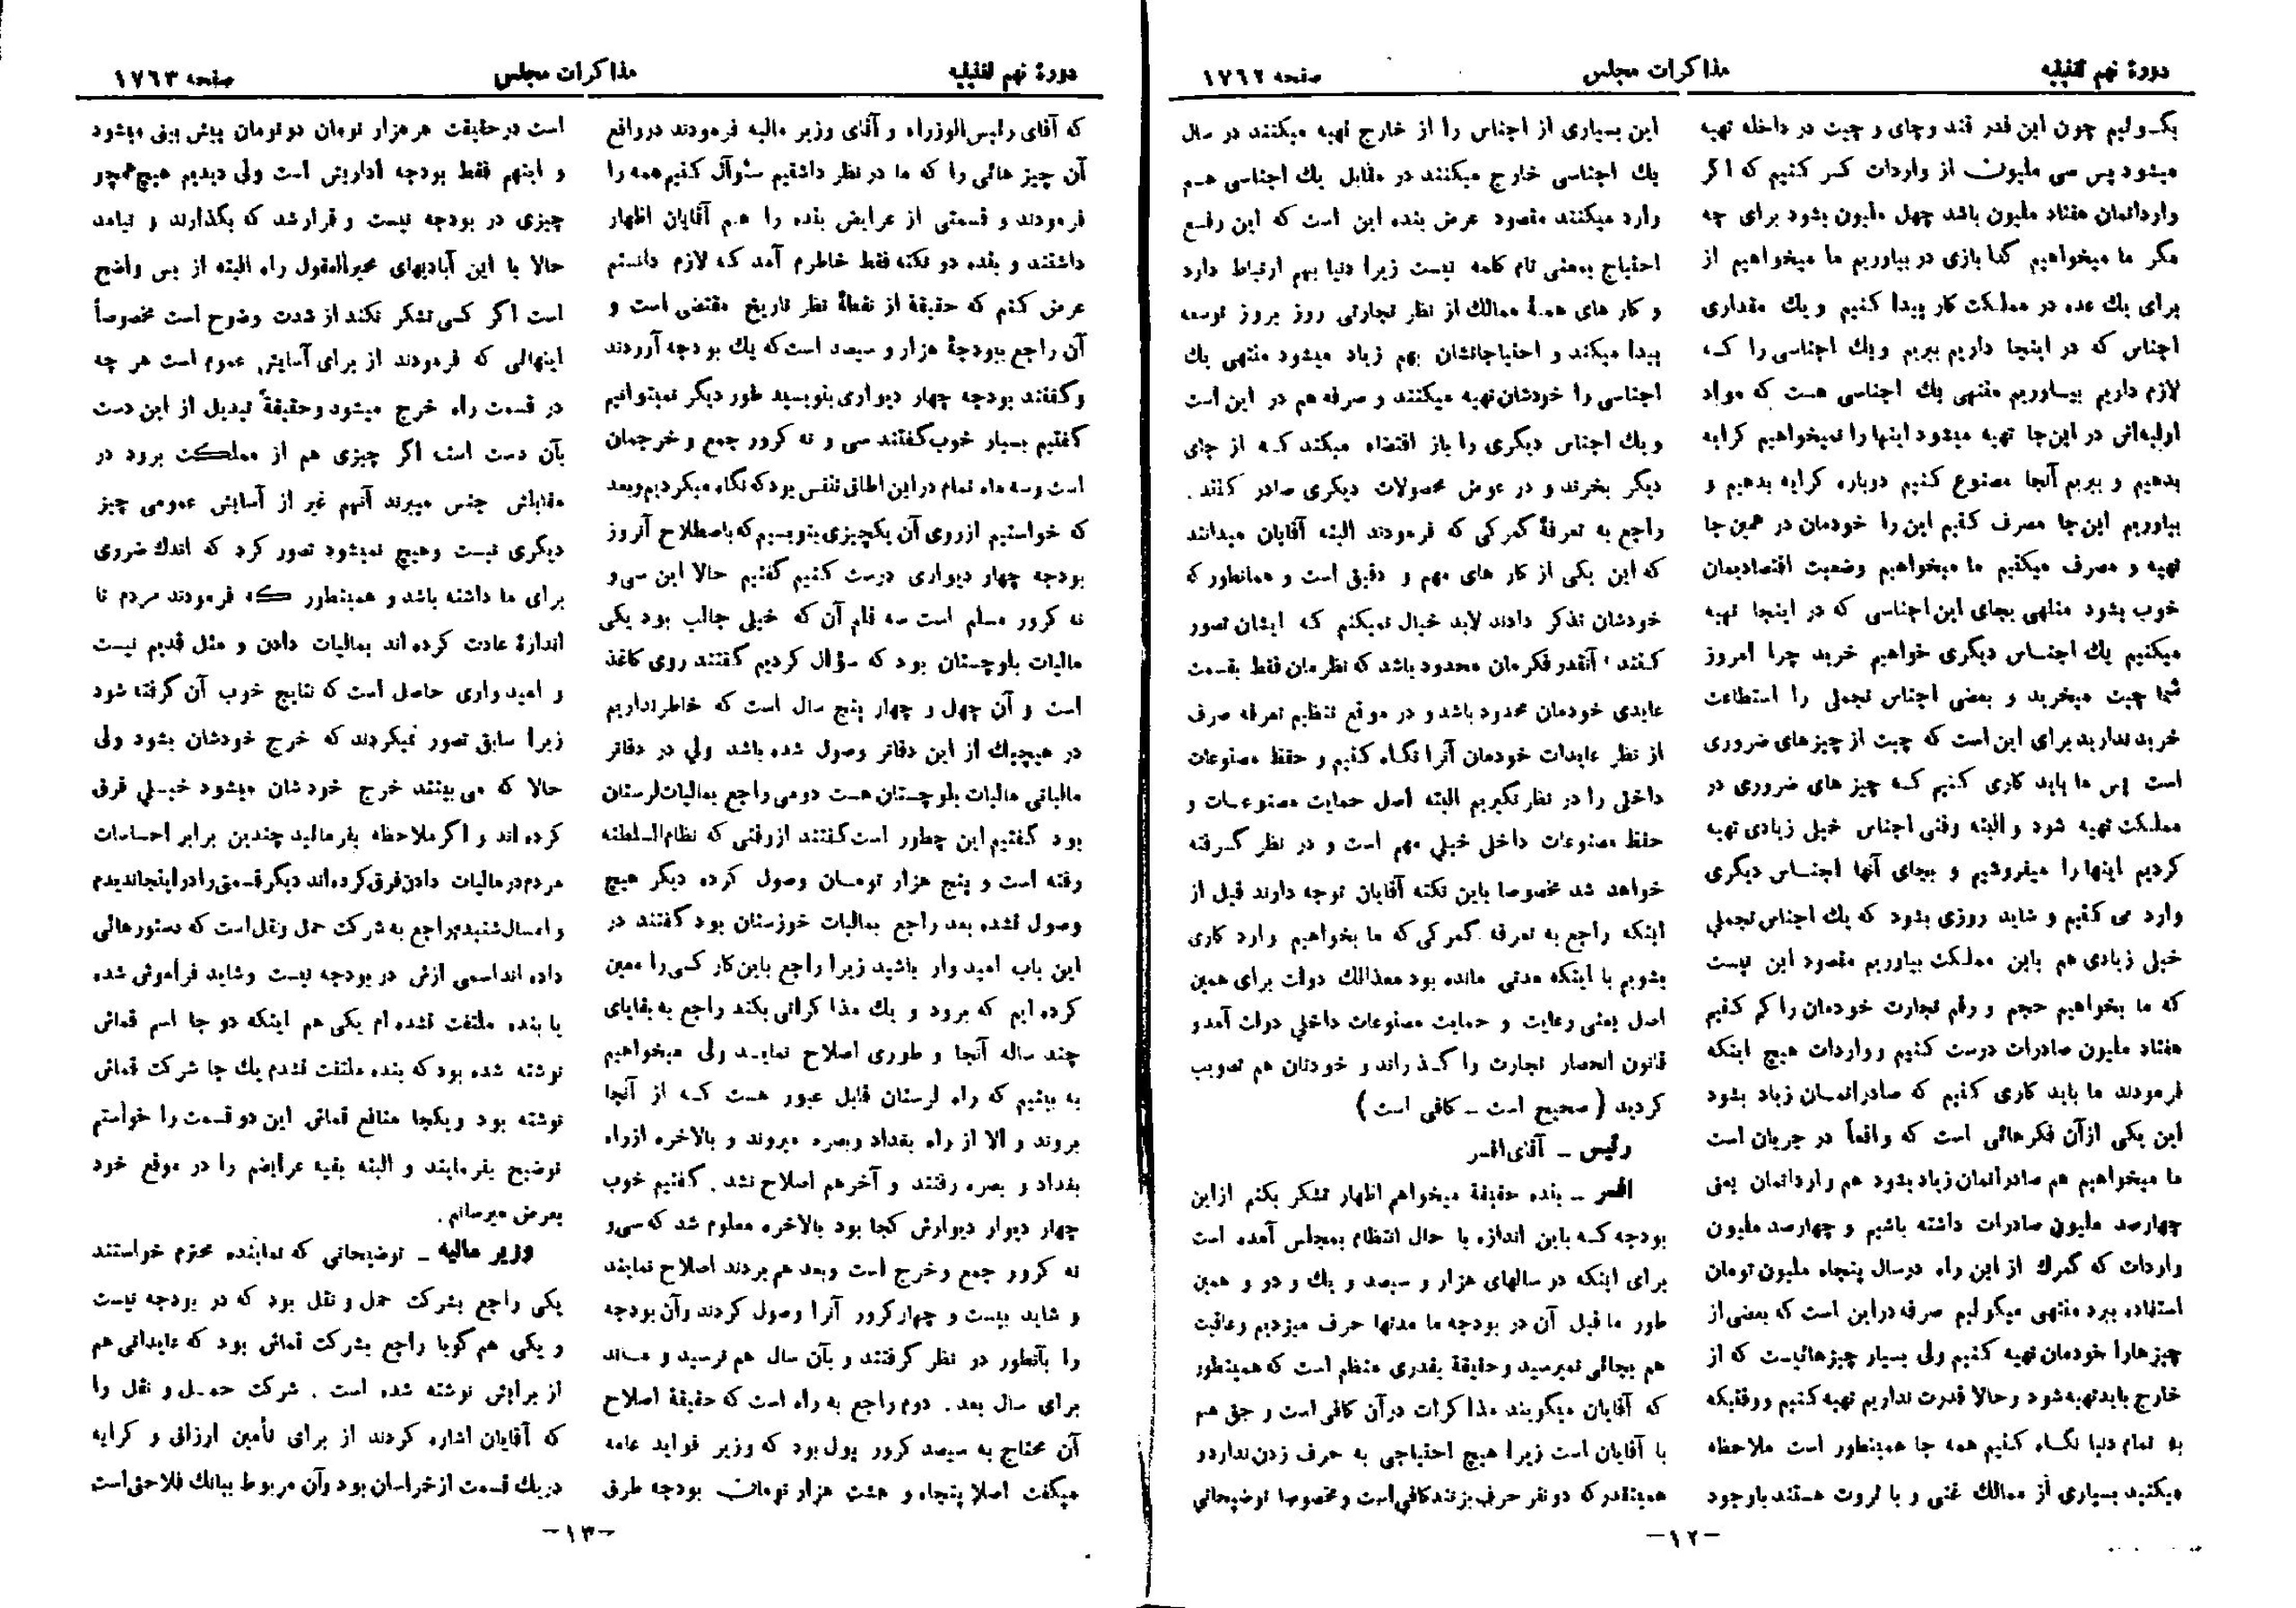 دورهٔ نهم تقنینیه
مذاکرات مجلس
صفحه ۱۷۶۲
یک‌ولیم چون این قدر قند وچای و چیت در داخله تهیه
میشود پس سی ملیون از واردات کسر کنیم که اگر
وارداتمان هفتاد ملیون باشد چهل ملیون بشود برای چه
مگر ما میخواهیم گدا بازی در بیاوریم ما میخواهیم از
برای یك عده در مملکت کار پیدا کنیم و یك مقداری
اجناس که در اینجا داریم ببریم ویك اجناسی را که
لازم داریم بیاوریم منتهی یك اجناسی هست که مواد
اولیه‌اش در این‌جا تهیه میشود اینها را نمیخواهیم کرایه
بدهیم و ببریم آنجا مصنوع کنیم دوباره کرایه بدهیم و
بیاوریم این‌جا مصرف کنیم این را خودمان در همین جا
تهیه و مصرف میکنیم ما میخواهیم وضعیت اقتصادیمان
خوب بشود منتهی بجای این اجناسی که در اینجا تهیه
میکنیم یك اجناس دیگری خواهیم خرید چرا امروز
شما چیت میخرید و بعضی اجناس تجملی را استطاعت
خرید ندارید برای این است که چیت از چیزهای ضروری
است پس ما باید کاری کنیم که چیز های ضروری در
مملکت تهیه شود و البته وقتی اجناس خیلی زیادی تهیه
کردیم اینها را میفروشیم و بجای آنها اجناس دیگری
وارد می کنیم و شاید روزی بشود که یك اجناس تجملی
خیلی زیادی هم باین مملکت بیاوریم مقصود این نیست
که ما بخواهیم حجم و رقم تجارت خودمان را کم کنیم
هفتاد ملیون صادرات درست کنیم و واردات هیچ اینکه
فرمودند ما باید کاری کنیم که صادراتمان زیاد بشود
این یکی ازآن فکرهائی است که واقعاً در جریان است
ما میخواهیم هم صادراتمان زیاد بشود هم وارداتمان یعنی
چهارصد ملیون صادرات داشته باشیم و چهارصد ملیون
واردات که گمرك از این راه درسال پنجاه ملیون تومان
استفاده ببرد منتهی میگوئیم صرفه دراین است که بعضی از
چیزهارا خودمان تهیه کنیم ولی بسیار چیزهائیست که از
خارج باید تهیه شود و حالا قدرت نداریم تهیه کنیم ووقتیکه
به تمام دنیا نگاه کنیم همه جا همینطور است ملاحظه
میکنید بسیاری از ممالك غنی و با ثروت هستند باوجود
این بسیاری از اجناس را از خارج تهیه میکنند در سال
یك اجناسی خارج میکنند در مقابل یك اجناسی هم
وارد میکنند مقصود عرض بنده این است که این رفع
احتیاج بمعنی تام کلمه نیست زیرا دنیا بهم ارتباط دارد
و کار های همهٔ ممالك از نظر تجارتی روز بروز توسعه
پیدا میکند و احتیاجاتشان بهم زیاد میشود منتهی یك
اجناسی را خودشان تهیه میکنند و صرفه هم در این است
ویك اجناس دیگری را باز اقتضاء میکند که از جای
دیگر بخرند و در عوض محصولات دیگری صادر کنند.
راجع به تعرفهٔ گمرکی که فرمودند البته آقایان میدانند
که این یکی از کار های مهم و دقیق است و همانطور که
خودشان تذکر دادند لابد خیال نمیکنم که ایشان تصور
کنند آنقدر فکرمان محدود باشد که نظرمان فقط بقسمت
عایدی خودمان محدود باشد و در موقع تنظیم تعرفه صرف
از نظر عایدات خودمان آنرا نگاه کنیم و حفظ مصنوعات
داخلی را در نظر نگیریم البته اصل حمایت مصنوعات و
حفظ مصنوعات داخلی خیلی مهم است و در نظر گرفته
خواهد شد مخصوصا باین نکته آقایان توجه دارند قبل از
اینکه راجع به تعرفه گمرکی که ما بخواهیم وارد کاری
بشویم با اینکه مدتی مانده بود معذالك دولت برای همین
اصل یعنی رعایت و حمایت مصنوعات داخلی دولت آمد و
قانون انحصار تجارت را گذراند و خودتان هم تصویب
کردید (صحیح است ـ کافی است)
رئیس ـ آقای افسر
افسر ـ بنده حقیقة میخواهم اظهار تشکر بکنم ازاین
بودجه که باین اندازه با حال انتظام بمجلس آمده است
برای اینکه در سالهای هزار و سیصد و یك و دو و همین
طور ماقبل آن در بودجه ما مدتها حرف میزدیم وعاقبت
هم بجائی نمیرسید و حقیقة بقدری منظم است که همینطور
که آقایان میگویند مذاکرات درآن کافی است و حق هم
با آقایان است زیرا هیچ احتیاجی به حرف زدن ندارد و
همینقدر که دو نفر حرف بزنند کافی است و مخصوصا توضیحاتی
ـ۱۲ـ
دورهٔ نهم تقنینیه
مذاکرات مجلس
صفحه ۱۷۶۳
که آقای رئیس‌الوزراء و آقای وزیر مالیه فرمودند درواقع
آن چیز هائی را که ما در نظر داشتیم سئوال کنیم همه را
فرمودند و قسمتی از عرایض بنده را هم آقایان اظهار
داشتند و بنده دو نکته فقط خاطرم آمد که لازم دانستم
عرض کنم که حقیقة از نقطهٔ نظر تاریخ مقتضی است و
آن راجع ببودجهٔ هزار و سیصد است که یك بودجه آوردند
وگفتند بودجه چهار دیواری بنویسید طور دیگر نمیتوانیم
گفتیم بسیار خوب گفتند سی و نه کرور جمع و خرجمان
است وسه ماه تمام در این اطاق تنفس بود که نگاه میکردیم و بعد
که خواستیم ازروی آن یکچیزی بنویسیم که باصطلاح آنروز
بودجه چهار دیواری درست کنیم گفتیم حالا این سی و
نه کرور مسلم است سه قلم آن که خیلی جالب بود یکی
مالیات بلوچستان بود که سؤال کردیم گفتند روی کاغذ
است و آن چهل و چهار پنج سال است که خاطر نداریم
در هیچیك از این دفاتر وصول شده باشد ولی در دفاتر
مالیاتی مالیات بلوچستان هست دومی راجع بمالیات لرستان
بود گفتیم این چطور است گفتند ازوقتی که نظام السلطنه
رفته است و پنج هزار تومان وصول کرده دیگر هیچ
وصول نشده بعد راجع بمالیات خوزستان بود گفتند در
این باب امید وار باشید زیرا راجع باین کار کسی را معین
کرده ایم که برود و یك مذاکراتی بکند راجع به بقایای
چند ساله آنجا و طوری اصلاح نمایند ولی میخواهیم
به بینیم که راه لرستان قابل عبور هست که از آنجا
بروند و الا از راه بغداد وبصره میروند و بالاخره ازراه
بغداد و بصره رفتند و آخرهم اصلاح نشد. گفتیم خوب
چهار دیوار دیوارش کجا بود بالاخره معلوم شد که سی و
نه کرور جمع و خرج است وبعد هم بردند اصلاح نمایند
و شاید بیست و چهار کرور آنرا وصول کردند وآن بودجه
را بآنطور در نظر گرفتند و بآن سال هم نرسید و ماند
برای سال بعد. دوم راجع به راه است که حقیقة اصلاح
آن محتاج به سیصد کرور پول بود که وزیر فواید عامه
میگفت اصلا پنجاه و هشت هزار تومان بودجه طرق
است درحقیقت هر هزار تومان دو تومان پیش بینی میشود
و اینهم فقط بودجه اداریش است ولی دیدیم هیچ همچو
چیزی در بودجه نیست و قرار شد که بگذارند و نیامد
حالا با این آبادیهای محیرالعقول راه البته از بس واضح
است اگر کسی تشکر نکند از شدت وضوح است مخصوصاً
اینهائی که فرمودند از برای آسایش عموم است هر چه
در قسمت راه خرج میشود وحقیقةً تبدیل از این دست
بآن دست است اگر چیزی هم از مملکت برود در
مقابلش جنس میبرند آنهم غیر از آسایش عمومی چیز
دیگری نیست وهیچ نمیشود تصور کرد که اندك ضرری
برای ما داشته باشد و همینطور که فرمودند مردم تا
اندازهٔ عادت کرده اند بمالیات دادن و مثل قدیم نیست
و امید واری حاصل است که نتایج خوب آن گرفته شود
زیرا سابق تصور نمیکردند که خرج خودشان بشود ولی
حالا که می بینند خرج خودشان میشود خیلی فرق
کرده اند و اگر ملاحظه بفرمائید چندین برابر احساسات
مردم در مالیات دادن فرق کرده‌اند دیگر قسمتی را در اینجا ندیدم
و امسال شنیدیم راجع به شرکت حمل ونقل است که دستورهائی
داده اند اسمی ازش در بودجه نیست وشاید فراموش شده
یا بنده ملتفت نشده ام یکی هم اینکه دو جا اسم قماش
نوشته شده بود که بنده ملتفت نشدم یك جا شرکت قماش
نوشته بود ویکجا منافع قماش این دو قسمت را خواستم
توضیح بفرمایند و البته بقیه عرایضم را در موقع خود
بعرض میرسانم.
وزیر مالیه ـ توضیحاتی که نماینده محترم خواستند
یکی راجع بشرکت حمل و نقل بود که در بودجه نیست
و یکی هم گویا راجع بشرکت قماش بود که عایداتی هم
از برایش نوشته شده است. شرکت حمل و نقل را
که آقایان اشاره کردند از برای تأمین ارزاق و کرایه
دریك قسمت از خراسان بود وآن مربوط ببانك فلاحتی است
ـ۱۳ـ